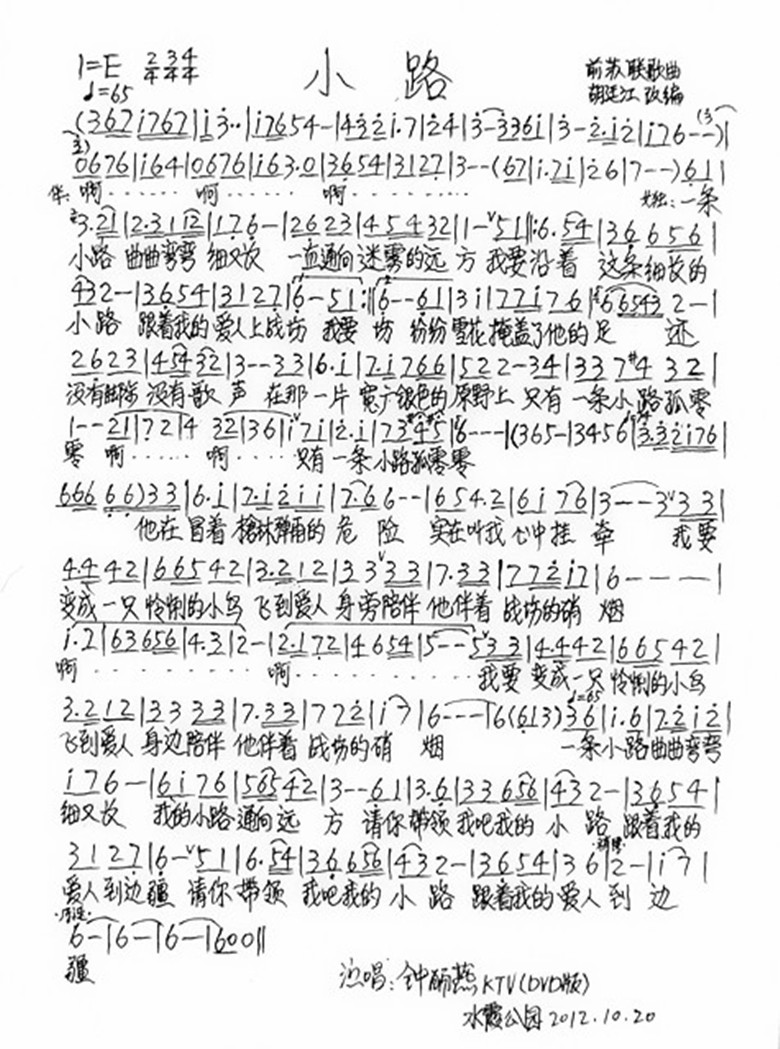 1=E 2/4 3/4 4/4 小路 前苏联歌曲
♩=65 胡廷江 改编
(3 6 7 i 7 6 7 | i 3·· | i 7 6 5 4 — | 4 3 2 i·7 | 2 4 | 3—3 3 6 i | 3—2·i 2 | i 7 6 — —) |
0 6 7 6 | i 6 4 | 0 6 7 6 | i 6 3·0 | 3 6 5 4 | 3 1 2 7 | 3 — —(6 7 | i·7 i | 2 6 | 7 — —) 6 1 |
伴: 啊········ 啊········ 啊········ 女独: 一条
3·2 1 | 2·3 1 1 2 | 1 7 6 — | 2 6 2 3 | 4 5 4 3 2 | 1 — 5 1 ‖: 6·5 4 | 3 6 6 5 6 |
小路 曲曲弯弯 细又长 一直通向迷雾的远 方 我要沿着 这条细长的
4 3 2 — | 3 6 5 4 | 3 1 2 7 | 6 — 5 1 :‖ 6 — — 6 1 | 3 i | 7 7 i 7 6 | 6 6 5 4 3 2 — |
小 路 跟着我的爱人上战场 我要 场 纷纷雪花掩盖了他的足 迹
2 6 2 3 | 4 5 4 3 2 | 3 — — 3 3 | 6·i | 7·i 7 6 6 | 5 2 2 — 3 4 | 3 3 7 #4 3 2 |
没有脚步 没有歌 声 在那一片 宽广银色的原野上 只有 一条小路孤零
1 — — 2 1 | 7 2 | 4 3 2 | 3 6 | i 7 i | 2·i | 7 3 #4 #5 | 6 — — — | (3 6 5 — | 3 4 5 6 | 3·3 2 i 7 6 |
零 啊······ 啊······ 只有一条小路孤零零
6 6 6 6 6) 3 3 | 6·i | 7·i 2 i i | 7·6 6 — — | 6 5 4·2 | 6 i 7 6 | 3 — — — 3 3 3 |
他在 冒着 枪林弹雨的 危 险 实在叫我 心中挂 牵 我要
4·4 4 2 | 6 6 5 4 2 | 3·2 1 2 | 3 3 3 3 | 7·3 3 | 7 7 2 i 7 | 6 — — — — |
变成一只 怜悯的小鸟 飞到爱人 身旁陪伴 他伴着 战场的硝 烟
i·2 | 6 3 6 5 6 | 4·3 | 2 — | 2·1 7 2 | 4 6 5 4 | 5 — — 5 3 3 | 4·4 4 2 | 6 6 5 4 2 |
啊········ 啊········ 我要 变成一只 怜悯的小鸟
♩=65
3·2 1 2 | 3 3 3 3 | 7·3 3 | 7 7 2 | i 7 | 6 — — — | 6 (6 1 3) 3 6 | i·6 | 7·2 i 2 |
飞到爱人 身边陪伴 他伴着 战场的硝 烟 一条小路曲曲弯弯
i 7 6 — | 6 i 7 6 | 5 6 5 4 2 | 3 — — 6 1 | 3·6 | 3 3 6 5 6 | 4 3 2 — | 3 6 5 4 |
细又长 我的小路通向远 方 请你带领 我吧我的 小 路 跟着我的
3 1 2 7 | 6 — 5 1 | 6·5 4 | 3 6 6 5 6 | 4 3 2 — | 3 6 5 4 | 3 6 | 2 — | i 7 |
爱人到边疆 请你带领 我吧我的 小 路 跟着我的爱人到 边
6 — | 6 — | 6 — | 6 0 0 ‖
疆 演唱:钟丽燕KTV(DVD版)
水霞公园2012.10.20